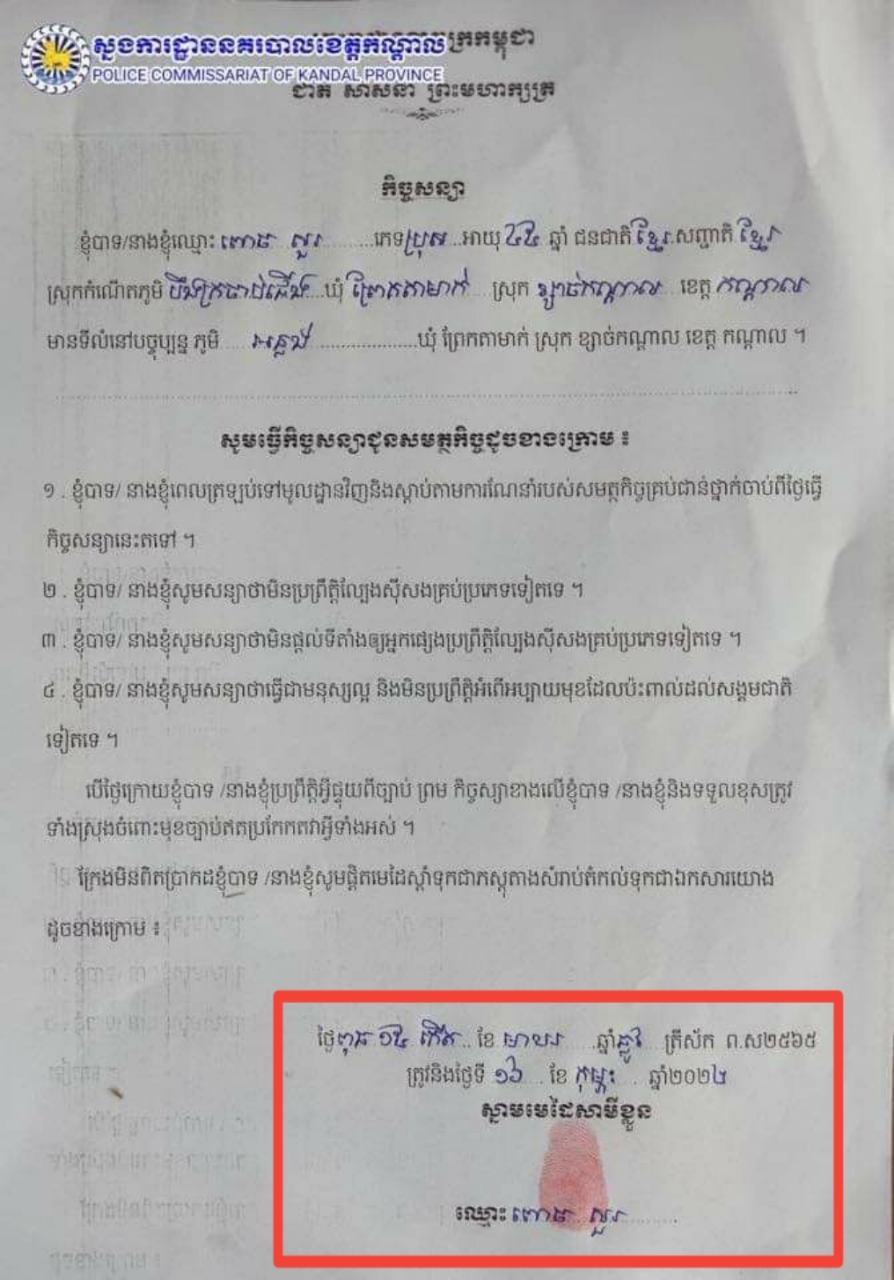 ស្នងការដ្ឋាននគរបាលខេត្តកណ្តាល
POLICE COMMISSARIAT OF KANDAL PROVINCE
ជាតិ សាសនា ព្រះមហាក្សត្រ
កិច្ចសន្យា
ខ្ញុំបាទ/នាងខ្ញុំឈ្មោះ សួរ ភេទប្រុស អាយុ ៤៥ ឆ្នាំ ជនជាតិ ខ្មែរ សញ្ជាតិ ខ្មែរ
ស្រុកកំណើតភូមិ បឹងក្រចាប់ជើង ឃុំ ព្រែកតាមាក់ ស្រុក ខ្សាច់កណ្តាល ខេត្ត កណ្តាល
មានទីលំនៅបច្ចុប្បន្ន ភូមិ អន្លង់ ឃុំ ព្រែកតាមាក់ ស្រុក ខ្សាច់កណ្តាល ខេត្ត កណ្តាល ។
សូមធ្វើកិច្ចសន្យាជូនសមត្ថកិច្ចដូចខាងក្រោម ៖
១ . ខ្ញុំបាទ/ នាងខ្ញុំពេលត្រឡប់ទៅមូលដ្ឋានវិញនិងស្តាប់តាមការណែនាំរបស់សមត្ថកិច្ចគ្រប់ជាន់ថ្នាក់ចាប់ពីថ្ងៃធ្វើ
កិច្ចសន្យានេះតទៅ ។
២ . ខ្ញុំបាទ/ នាងខ្ញុំសូមសន្យាថាមិនប្រព្រឹត្តិល្បែងស៊ីសងគ្រប់ប្រភេទទៀតទេ ។
៣ . ខ្ញុំបាទ/ នាងខ្ញុំសូមសន្យាថាមិនផ្តល់ទីតាំងឲ្យអ្នកផ្សេងប្រព្រឹត្តិល្បែងស៊ីសងគ្រប់ប្រភេទទៀតទេ ។
៤ . ខ្ញុំបាទ/ នាងខ្ញុំសូមសន្យាថាធ្វើជាមនុស្សល្អ និងមិនប្រព្រឹត្តិអំពើអប្បាយមុខដែលប៉ះពាល់ដល់សង្គមជាតិ
ទៀតទេ ។
បើថ្ងៃក្រោយខ្ញុំបាទ /នាងខ្ញុំប្រព្រឹត្តិអ្វីផ្ទុយពីច្បាប់ ព្រម កិច្ចស្យាខាងលើខ្ញុំបាទ /នាងខ្ញុំនិងទទួលខុសត្រូវ
ទាំងស្រុងចំពោះមុខច្បាប់ឥតប្រកែកតវ៉ាអ្វីទាំងអស់ ។
ក្រែងមិនពិតប្រាកដខ្ញុំបាទ /នាងខ្ញុំសូមផ្តិតមេដៃស្តាំទុកជាភស្តុតាងសំរាប់តំកល់ទុកជាឯកសារយោង
ដូចខាងក្រោម ៖
ថ្ងៃពុធ ១៥ កើត ខែ មាឃ ឆ្នាំឆ្លូវ ត្រីស័ក ព.ស២៥៦៥
ត្រូវនិងថ្ងៃទី ១៦ ខែ កុម្ភះ ឆ្នាំ២០២២
ស្នាមមេដៃសាមីខ្លួន
ឈ្មោះ សួរ